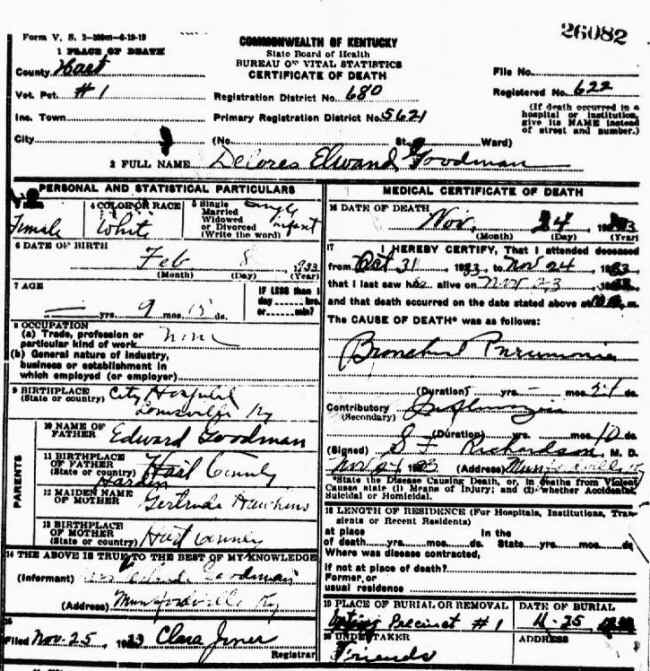 26082
Form V. S.
1 PLACE OF DEATH
COMMONWEALTH OF KENTUCKY
State Board of Health
BUREAU OF VITAL STATISTICS
CERTIFICATE OF DEATH
County Hart
File No.
Vot. Pct. #1
Registration District No. 680
Registered No. 622
Inc. Town
Primary Registration District No. 5621
(If death occurred in a
hospital or institution,
give its NAME instead
of street and number.)
City
(No. St. Ward)
2 FULL NAME Delores Goodman
PERSONAL AND STATISTICAL PARTICULARS
Female
4 COLOR OR RACE
White
5 Single
Married
Widowed
or Divorced
(Write the word)
Single
infant
6 DATE OF BIRTH
Feb 8 1933
(Month) (Day) (Year)
7 AGE
yrs. 9 mos. 15 ds.
IF LESS than 1
day hrs.
or min?
8 OCCUPATION
(a) Trade, profession or
particular kind of work none
(b) General nature of industry,
business or establishment in
which employed (or employer)
9 BIRTHPLACE
(State or country) City Hospital
Louisville Ky
PARENTS
10 NAME OF
FATHER Edward Goodman
11 BIRTHPLACE
OF FATHER
(State or country) Hart County
Hardin
12 MAIDEN NAME
OF MOTHER Gertrude Hawkins
13 BIRTHPLACE
OF MOTHER
(State or country) Hart County
14 THE ABOVE IS TRUE TO THE BEST OF MY KNOWLEDGE
(Informant) Goodman
(Address) Munfordville Ky
15
Filed Nov. 25, 1933 Clara Jones
Registrar
MEDICAL CERTIFICATE OF DEATH
16 DATE OF DEATH
Nov. 24
(Month) (Day) (Year)
17 I HEREBY CERTIFY, That I attended deceased
from Oct 31 1933, to Nov 24 1933
that I last saw h alive on Nov 23
and that death occurred on the date stated above at m.
The CAUSE OF DEATH* was as follows:
Bronchial Pneumonia
(Duration) yrs. mos. 24 ds.
Contributory
(Secondary)
(Duration) yrs. mos. 10 ds.
(Signed) S. F. Richardson, M. D.
(Address) Munfordville Ky
*State the Disease Causing Death, or, in deaths from Violent
Causes state (1) Means of Injury; and (2) whether Accidental,
Suicidal or Homicidal.
18 LENGTH OF RESIDENCE (For Hospitals, Institutions, Tran-
sients or Recent Residents)
at place In the
of death yrs. mos. ds. State yrs. mos. ds.
Where was disease contracted,
if not at place of death?
Former, or
usual residence
19 PLACE OF BURIAL OR REMOVAL
Voting Precinct #1
DATE OF BURIAL
11-25
20 UNDERTAKER
Friends
ADDRESS